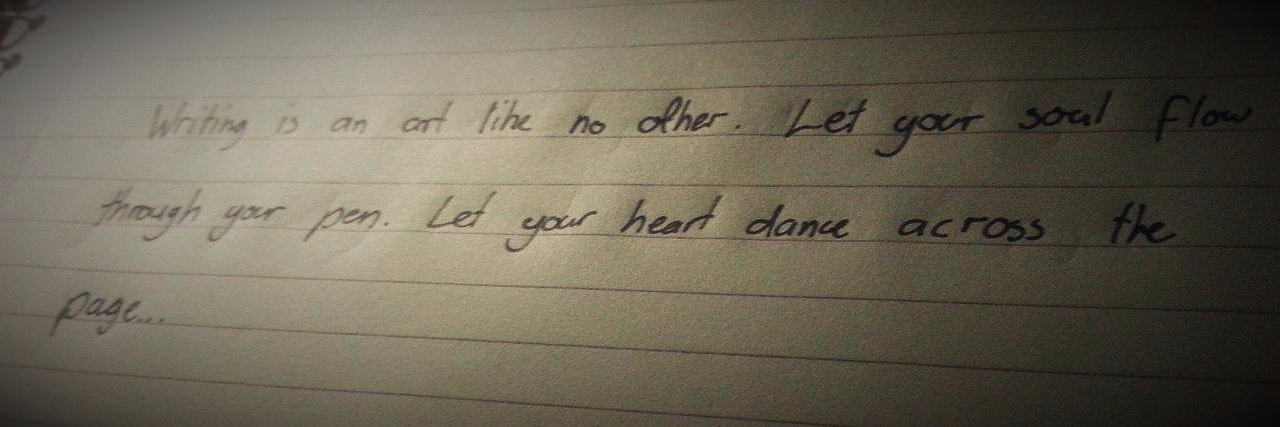 Writing is an art like no other. Let your soul flow
through your pen. Let your heart dance across the
page...